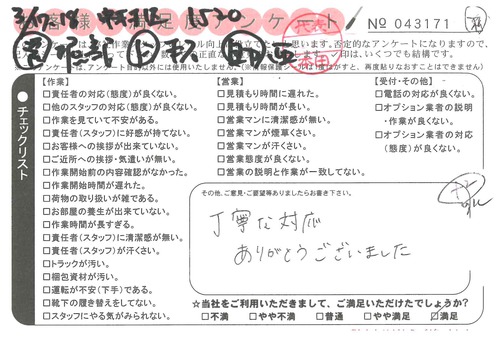 お客様満足度アンケート
№ 043171
チェックリスト
【作業】
□責任者の対応(態度)が良くない。
□他のスタッフの対応(態度)が良くない。
□作業を見ていて不安がある。
□責任者(スタッフ)に好感が持てない。
□お客様への挨拶が出来ていない。
□ご近所への挨拶・気遣いが無い。
□作業開始前の内容確認がなかった。
□作業開始時間が遅れた。
□荷物の取り扱いが雑である。
□お部屋の養生が出来ていない。
□作業時間が長すぎる。
□責任者(スタッフ)に清潔感が無い。
□責任者(スタッフ)が汗くさい。
□トラックが汚い。
□梱包資材が汚い。
□運転が不安(下手)である。
□靴下の履き替えをしてない。
□スタッフにやる気がみられない。
【営業】
□見積もり時間に遅れた。
□見積もり時間が長い。
□営業マンに清潔感が無い。
□営業マンが煙草くさい。
□営業マンが汗くさい。
□営業態度が良くない。
□営業の説明と作業が一致してない。
【受付・その他】
□電話の対応が良くない。
□オプション業者の説明
・作業が良くない。
□オプション業者の対応
(態度)が良くない。
その他、ご意見・ご要望等ありましたらお書き下さい。
丁寧な対応
ありがとうございました
☆当社をご利用いただきまして、ご満足いただけたでしょうか?
□不満 □やや不満 □普通 □やや満足 ☑満足